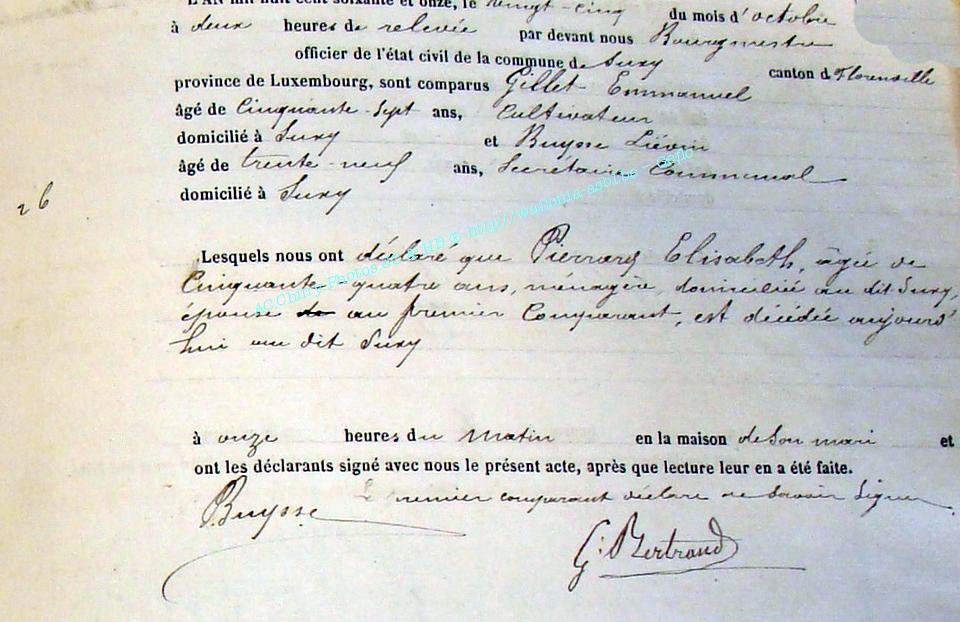 L'AN mil huit cent soixante et onze, le vingt-cinq du mois d'octobre
à deux heures de relevée par devant nous Bourgmestre
officier de l'état civil de la commune de Suxy canton de Florenville
province de Luxembourg, sont comparus Gillet Emmanuel
âgé de Cinquante-sept ans, Cultivateur
domicilié à Suxy et Buysse Liévin
âgé de trente-neuf ans, Secrétaire Communal
domicilié à Suxy
26
Lesquels nous ont déclaré que Pierrard Elisabeth, âgée de
Cinquante-quatre ans, ménagère, domiciliée au dit Suxy,
épouse de au premier Comparant, est décédée aujourd'
hui au dit Suxy
à onze heures du matin en la maison de son mari et
ont les déclarants signé avec nous le présent acte, après que lecture leur en a été faite.
Le premier comparant déclare ne savoir signer.
Buysse
G. Bertrand
AC Chiny-Photos
HB © http://wallonia-asbl.be